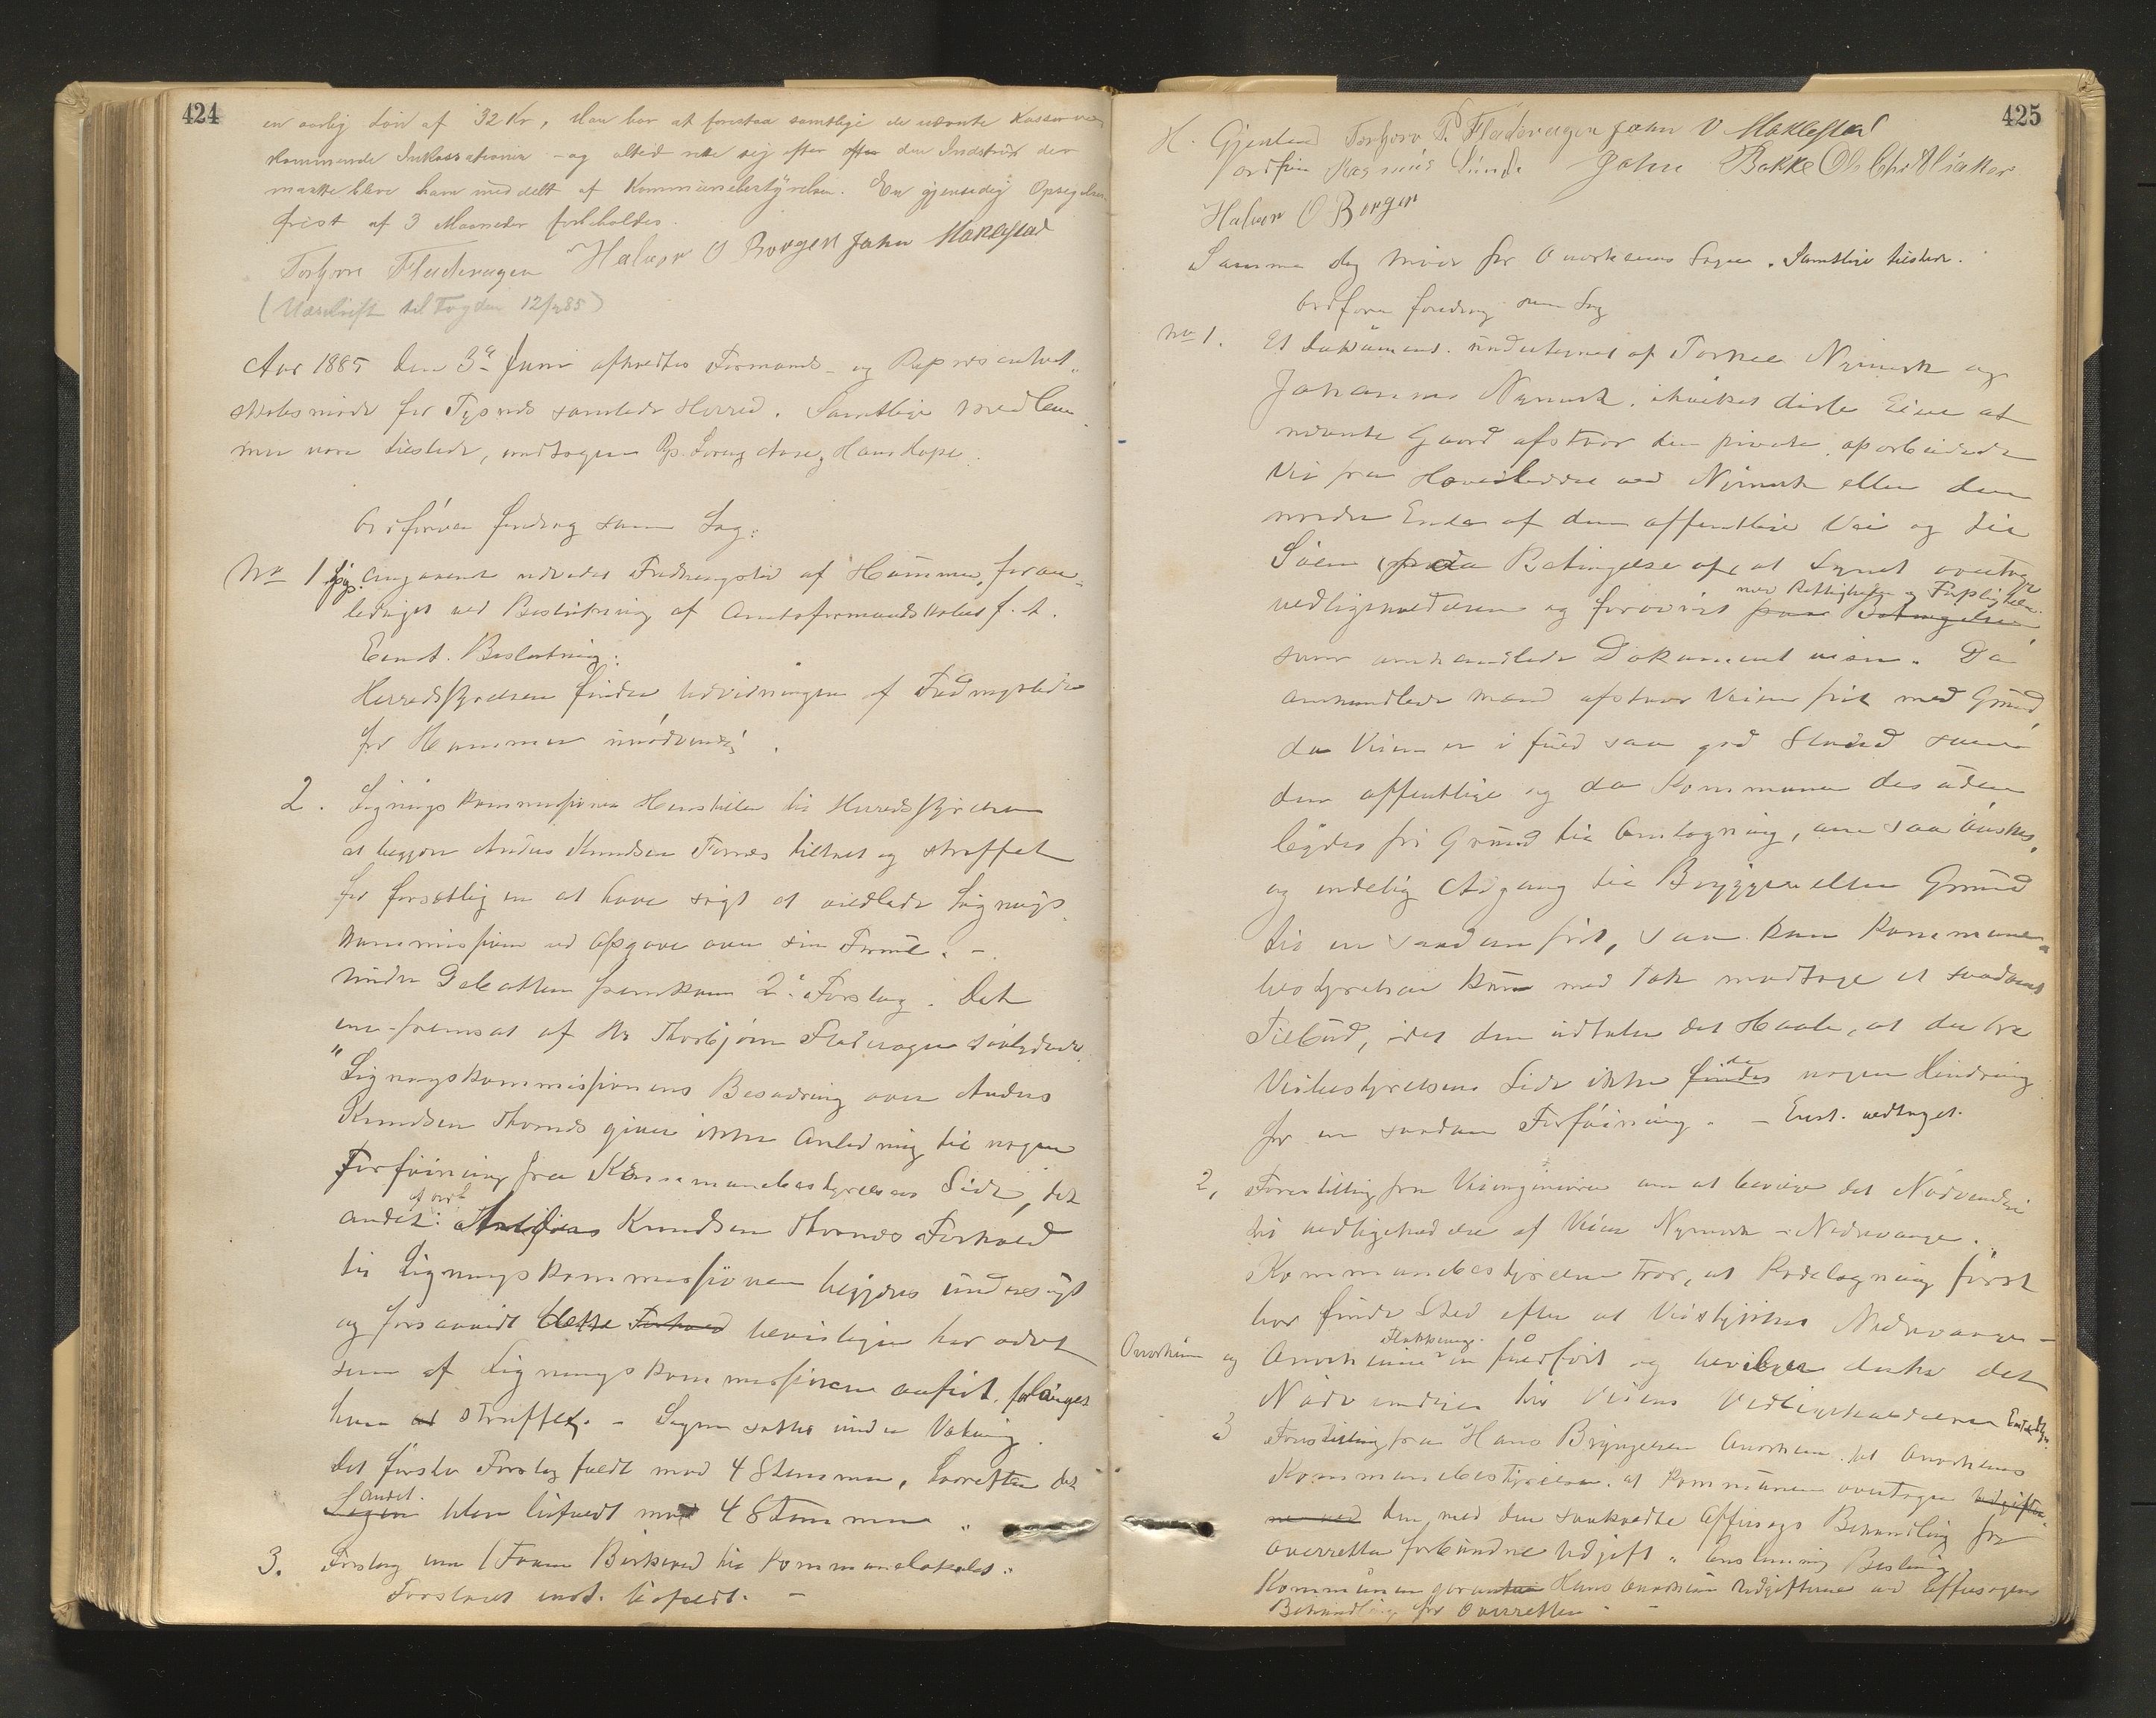 424
en aarlig Løn af 32 Kr, Han har at forestaa samtlige de nævnte Kasser ved-
kommende Inkassationer - og altid rette sig efter den Instrux der
maatte blive ham meddelt af Kommunebestyrelsen. En gjensidig Opsigelses
frist af 3 Maaneder forbeholdes.
Torbjørn Fladevagen Halvor O Borgen John Maklestad
(Udskrift til Fogden 12/7 85)
Aar 1885 den 3die Juni afholdtes Formands- og Repræsentant-
skabsmøde for Tysnes samlede Herred. Samtlige Medlem
mer vare tilstede, undtagen Rp. Hans Hope.
Ordføreren foredrog som Sag:
No 1 Angaaende udvidet Fredningstid af Hummer, foran-
lediget ved Beslutning af Amtsformandskabet f. A.
Eenst. Beslutning:
Herredsstyrelsen finder Udvidningen af Fredningstiden
for Hummer unødvendig.
2. Ligningskommissionen Henstiller til Herredsstyrelsen
at begjære Anders Knudsen Tornes tiltalt og straffet
for forsætligen at have søgt at vildlede Lignings-
kommissionen ved Opgave over sin Formue. -
Under Debatten fremkom 2de Forslag. Det
ene fremsat af Hr Thorbjørn Fladevagen saalydende
"Ligningskommissionens Besværing over Anders
Knudsen Thornes giver ikke Anledning til nogen
Forføining fra Kommunebestyrelsens Side", det
andet: Anders Knudsen Thornes Forhold
til Ligningskommissionen begjæres undersøgt
og forsaavidt dette Forhold bevisligen har været
som af Ligningskommissionen anført forlanges
ham at straffet. - Sagen sattes under Votering.
Det første Forslag faldt mod 4 Stemmer, hvorefter det
andet
Sagen blev bifaldt mod 4 Stemmer "
3. Forslag om 1 Favn Birkeved til Kommunelokalet.
Forslaget enst. bifaldt. -
425
H. Gjerland Torbjørn P. Fladevagen John V Maklestad
ordfører Rasmus Lunde John Bakke Ole Chr
Halvor O Borgen
Samme dag Møde for Onarheims Sogn. Samtlige tilstede.
Ordføren foredrog som Sag
No 1. Et Dokument undertegnet af Torkel Nymark og
Johannes Nymark, ihvilket disse Eiere af
nævnte Gaard afstaar den private oparbeidede
Vei fra Hovedleddet ved Nymark eller den
nordre Ende af den offentlige Vei og til
Søen paa Betingelse af, at Sognet overtager
med Rettigheder og Forpligtelser
vedligeholdelsen og forøvrigt paa Betingelser
som omhandlede Dokument viser. Da
omhandlede Mænd afstaar Veien frit med Grund,
da Veien er i fuld saa god Stand som
den offentlige og da Kommunen des uden
tilbydes fri Grund til Omlægning, om saa ønskes,
og endelig Adgang til Brygge eller Grund
til en saadan frit, saa kan Kommune-
bestyrelsen kun med Tak modtage et saadant
Tilbud, idet den udtaler det Haab, at der fra
Veibestyrelsens Side ikke findes nogen Hindring
for en saadan Forføining. - Enst. vedtaget.
2, Forestilling fra Veiingeniøren om at bevilge det Nødvendige
til vedligeholdelse af Veien Nymark - Nedrevaage.
Kommunebestyrelsen tror, at Rodelægning først
bør finde Sted efter at Veistykket Nedrevaage -
Onarheim og Onarheim er fuldført og bevilger derfor det
Nødvendige til Veiens Vedligeholdelse
3 Forestilling fra Hans Brynjelsen Onarheim til Onarheims
Kommunebestyrelse, at Kommunen overtager Udgifter-
ne ved den, med den saakaldte Affusags Behandling for
Overretten forbundne Udgift. Enstemmig Beslutning
Kommunen garanterer Hans Onarheim Udgifterne ved Affusagens
Behandling for Overretten. -